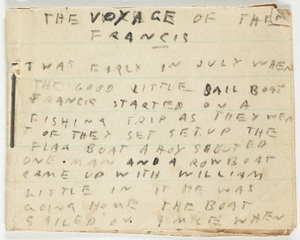 THE VOYAGE OF THE
FRANCIS
T WAS EARLY IN JULY WHEN
THE GOOD LITTLE SAIL BOAT
FRANCIS STARTED ON A
FISHING TRIP AS THEY WEN
T OF THEY SET SET UP THE
FLAG BOAT A HOY SHOUTED
ONE MAN AND A ROWBOAT
CAME UP WITH WILLIAM
LITTLE IN IT HE WAS
GOING HOME THE BOAT
SAILED ON A MILE WHEN